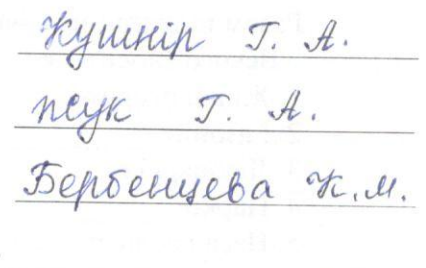 Кушнір Г. А.
жук Г. А.
Бербенцева К. М.